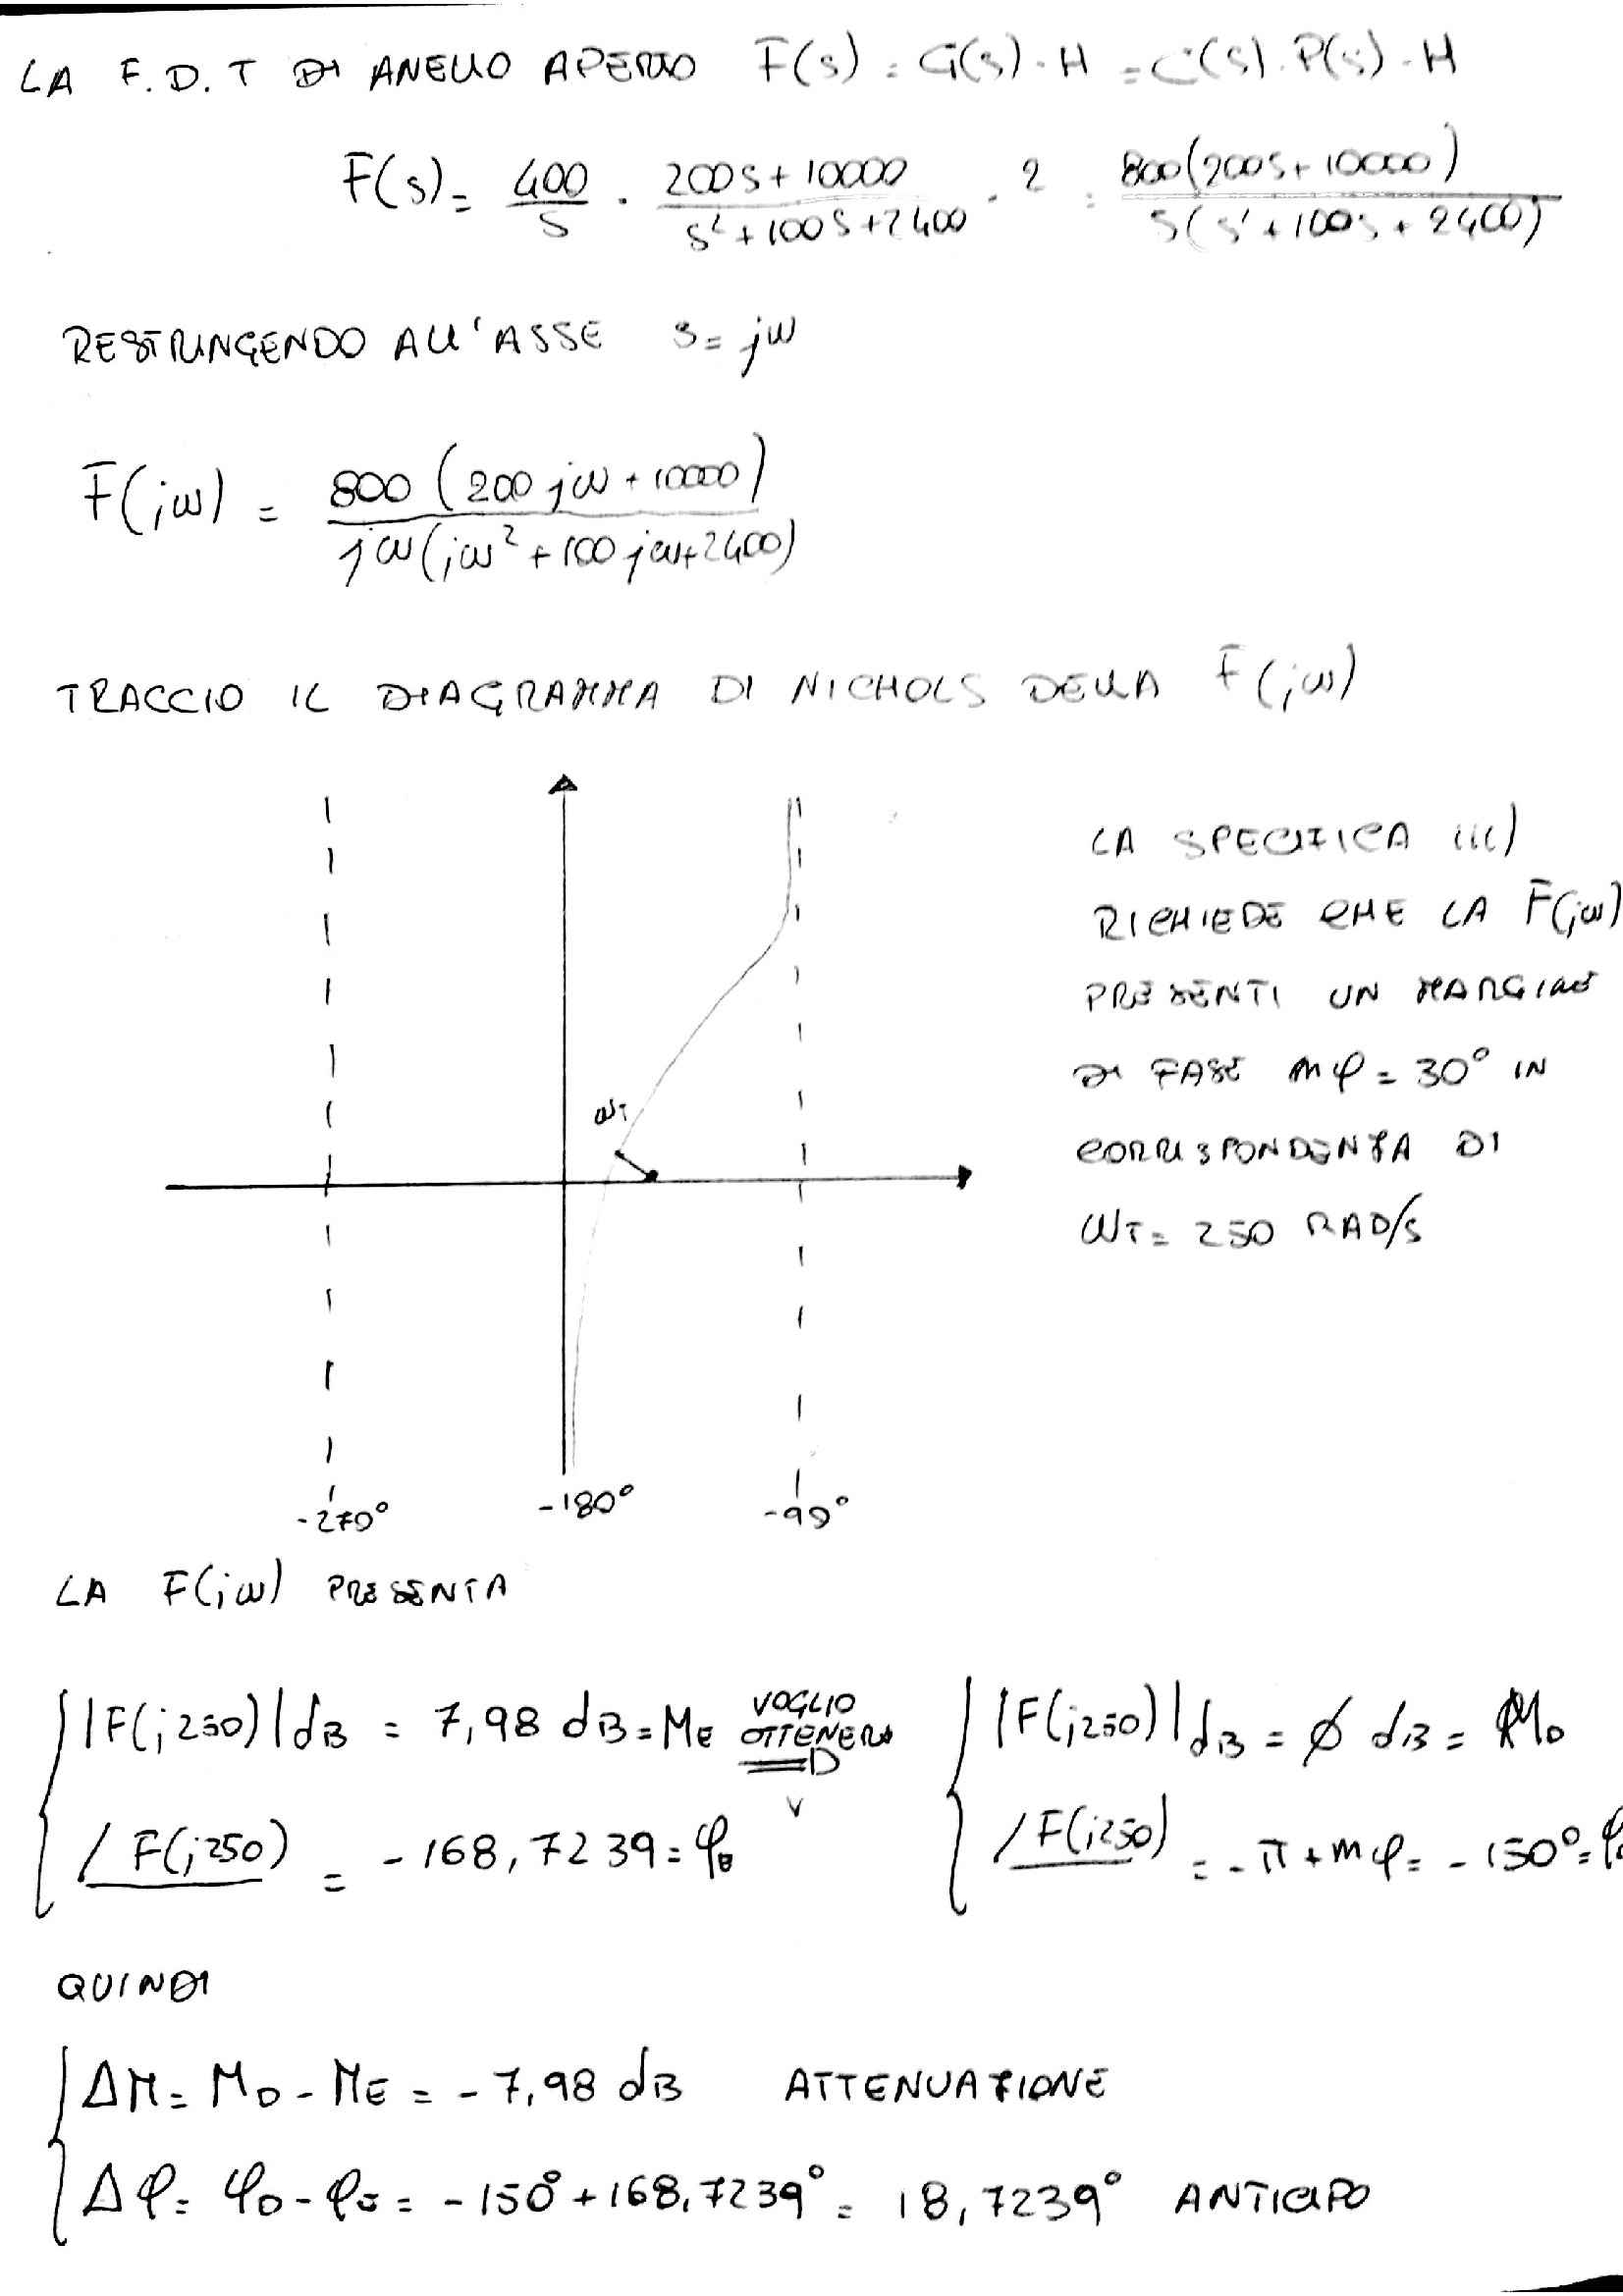 LA F.D.T DI ANELLO APERTO F(s) = G(s)·H = C(s)·P(s)·H
F(s) = 400/s · (200s+10000)/(s²+100s+2400) · 2 = 800(200s+10000)/(s(s²+100s+2400))
RESTRINGENDO ALL'ASSE s=jω
F(jω) = 800(200jω+10000)/(jω(jω²+100jω+2400))
TRACCIO IL DIAGRAMMA DI NICHOLS DELLA F(jω)
LA SPECIFICA iii)
RICHIEDE CHE LA F(jω)
PRESENTI UN MARGINE
DI FASE mφ = 30° IN
CORRISPONDENZA DI
ωT = 250 RAD/s
ωT
-270° -180° -90°
LA F(jω) PRESENTA
|F(j250)|dB = 7,98 dB = ME VOGLIO OTTENERE ⇒ |F(j250)|dB = ∅ dB = MD
∠F(j250) = -168,7239 = φE ∠F(j250) = -π + mφ = -150° = φ
QUINDI
ΔM = MD - ME = -7,98 dB ATTENUAZIONE
Δφ = φD - φE = -150° + 168,7239° = 18,7239° ANTICIPO